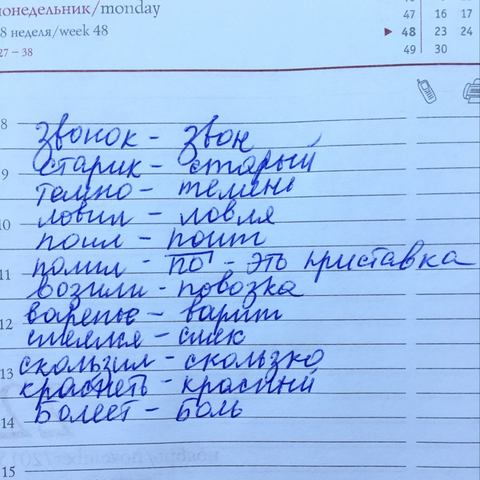 понедельник/monday
8 неделя/week 48
27 – 38
47 16 17
▶ 48 23 24
49 30
8
звонок – звон
9 старик – старый
темно – темень
10 ловил – ловля
поил – поит
11 помыл – по – это приставка
возили – повозка
12 варенье – варит
смеялся – смех
13 скользил – скользко
краснеть – красный
14 болеет – боль
15